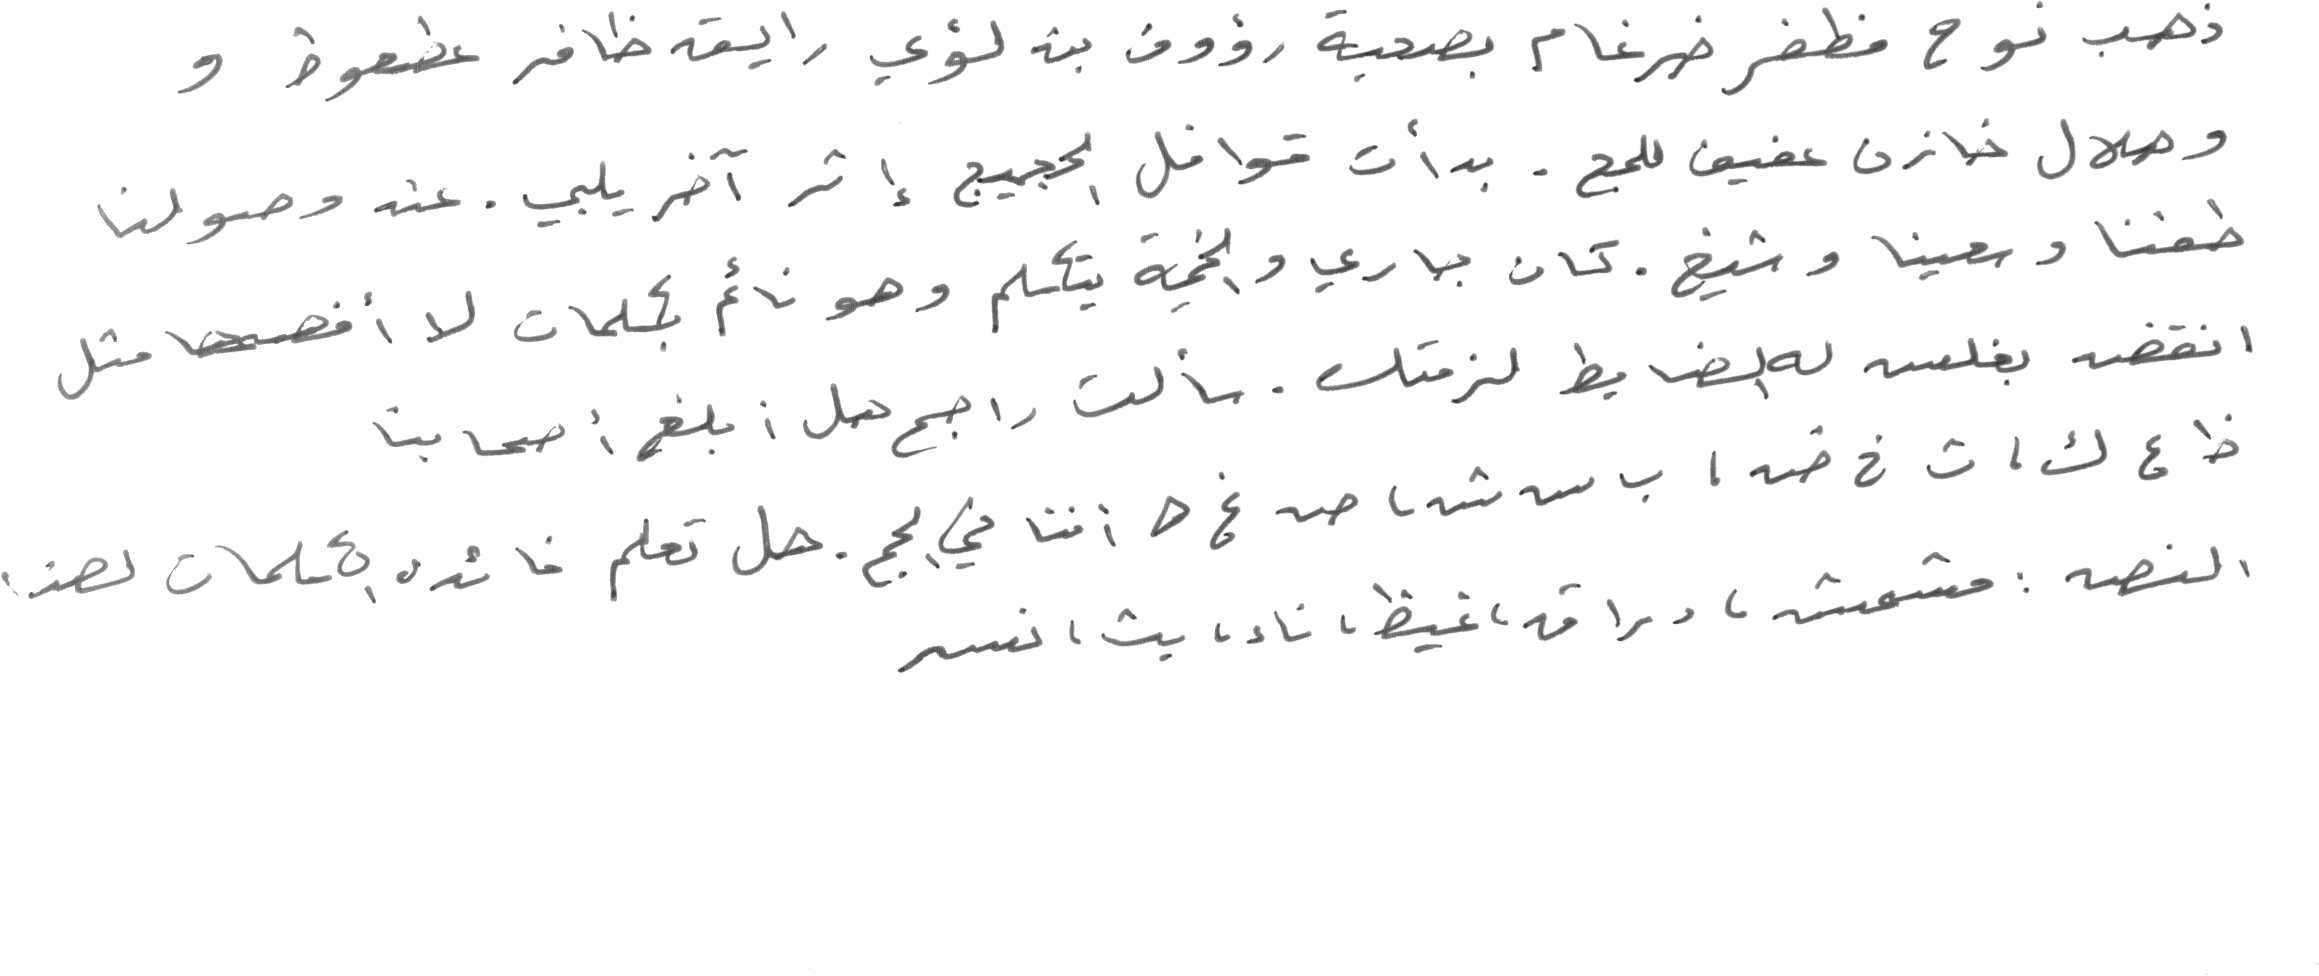 ذهب نوح مظفر ضرغام بصحبة رؤوف بن لؤي رايق ظافر عظعوظ و
وهلال خازن عفيف للحج . بدأت قوافل الحجيج إثر آخر يلبي . عند وصولنا
طفنا وسعينا وشيخ . كان جاري والخيمة يتكلم وهو نائم بكلمات لا أفهمها مثل
انقض بغلس له الضابط لزمتك . سألت راجح هل أبلغ أصحابنا
ظ ع ك ا ث خ ض ا ب س ش ا ص غ ط أننا في الحج . هل تعلم فائده الكلمات لهذا
النص : مشمش ، دراق ، غيظ ، ناد ، يث ، نسر